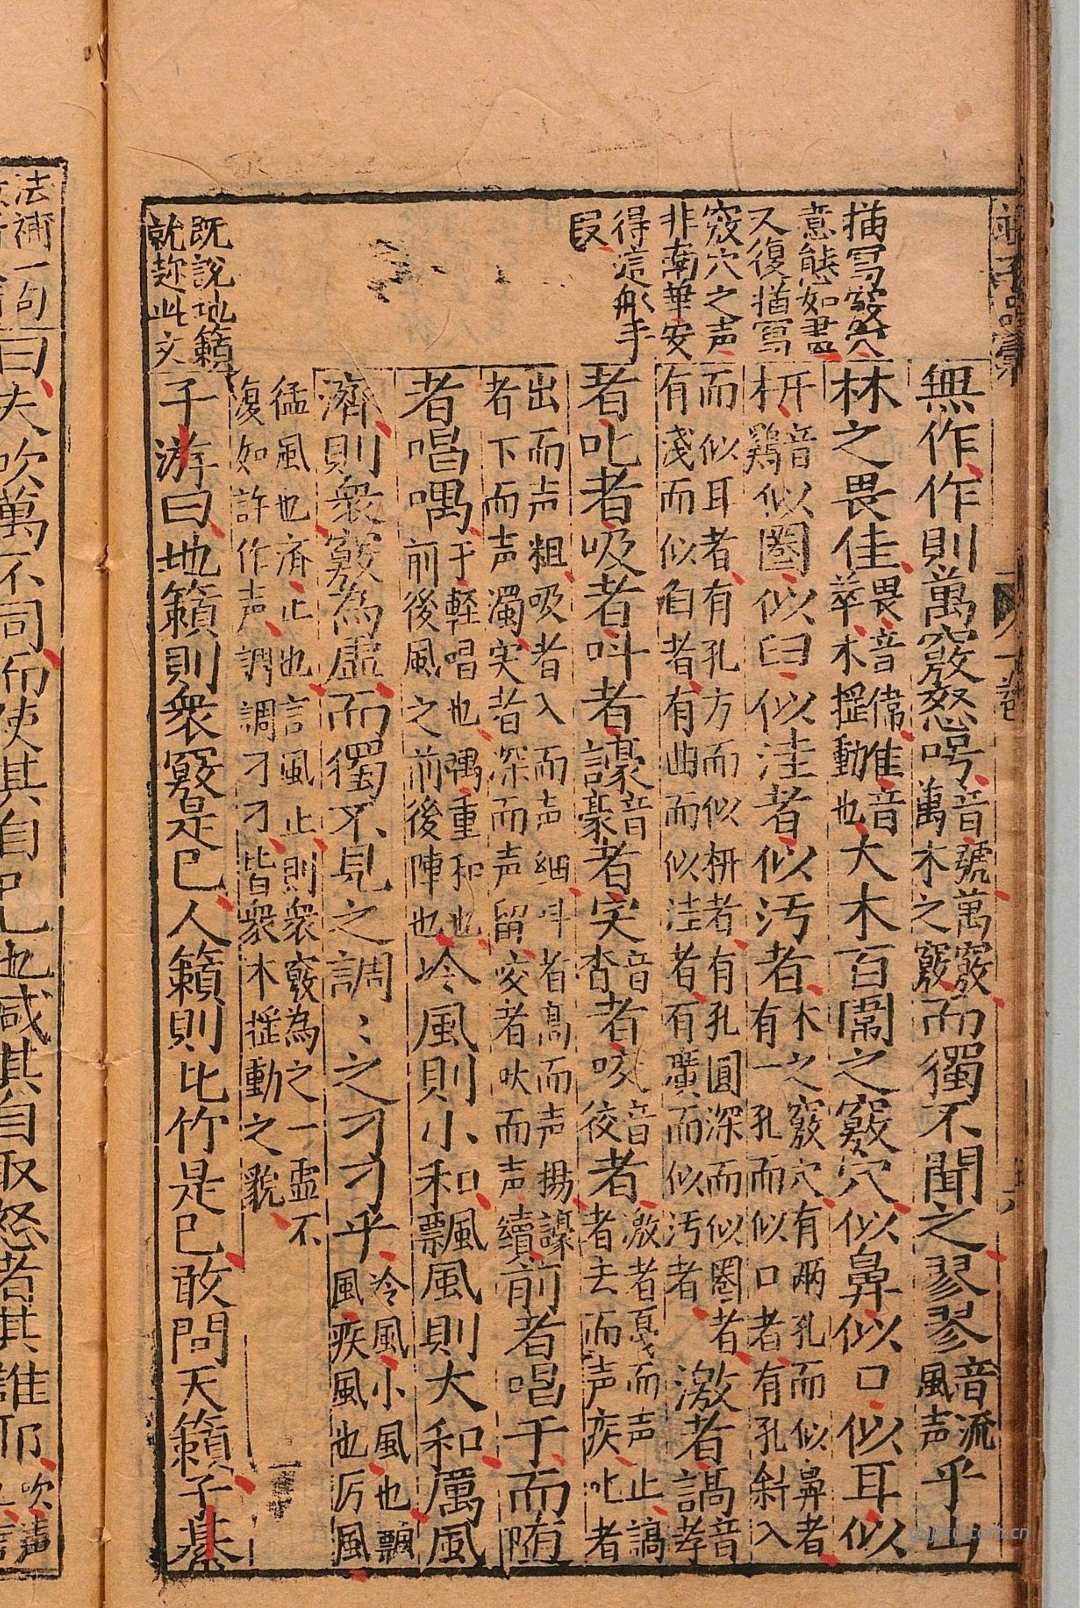 描写竅穴
意態如畫
又復猶写
竅穴之声
非南華安
得這般手
段
既說地籟
就趂此文
無作作則萬竅怒呺音號萬竅萬木之竅而獨不聞之翏翏音流風声乎山
林之畏佳畏音偎隹音萃木摇動也大木百圍之竅穴似鼻似口似耳似
枅音鷄似圈似臼似洼者似汚者木之竅穴有兩孔而似鼻者有一孔而似口者有孔斜入
而似耳者有孔方而似枅者有孔圓深而似圈者有淺而似臼者有曲而似洼者有廣而似汚者激者謞音孝
者叱者吸者叫者譹音豪者宎音杳者咬音佼者激者戞而声止謞者去而声疾叱者
出而声粗吸者入而声細叫者高而声揚譹者下而声濁宎者深而声留咬者吠而声續前者唱于而随
者唱喁于輕唱也喁重和也前後風之前後陣也泠風則小和飄風則大和厲風
濟則衆竅為虛而獨不見之調〻之刁刁乎泠風小風也飄風疾風也厉風
猛風也濟止也言風止則衆竅為之一虛不復如許作声調調刁刁皆衆木摇動之貌
子游曰地籟則衆竅是已人籟則比竹是已敢問天籟子綦
法補一句
曰夫吹萬不同而使其自已也咸其自取怒者其誰耶